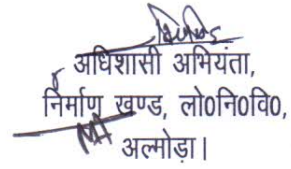 अधिशासी अभियंता,
निर्माण खण्ड, लो0नि0वि0,
अल्मोड़ा।